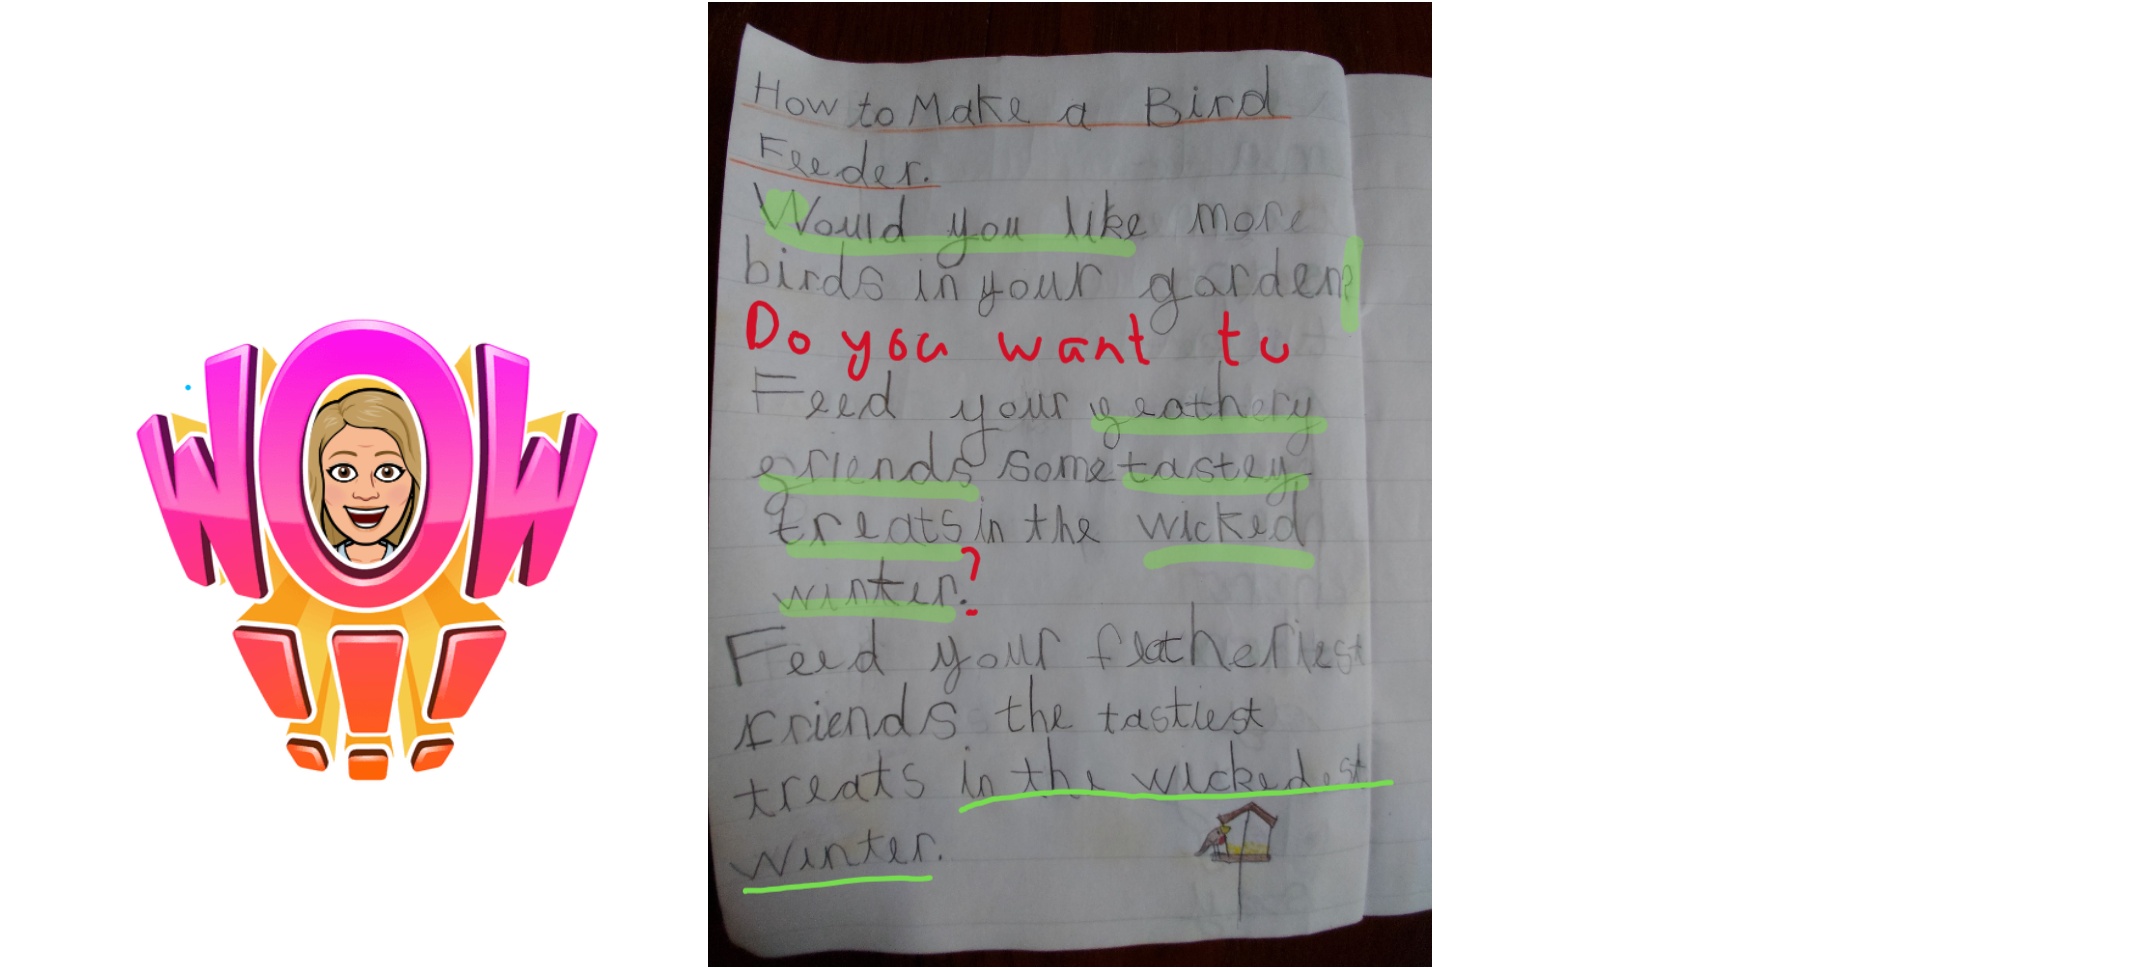 WOW
!!!
How to Make a Bird
Feeder.
Would you like more
birds in your garden?
Do you want to
Feed your feathery
friends some tastey
treats in the wicked
winter.?
Feed your featheriest
friends the tastiest
treats in the wickedest
winter.